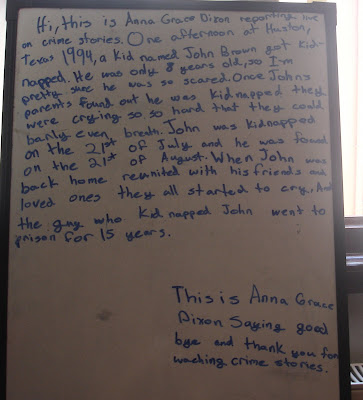 Hi, this is Anna Grace Dixon reporting live
on crime stories. One afternoon at Huston,
Texas 1994, a kid named John Brown got kid-
napped. He was only 8 years old, so I'm
pretty sure he was so scared. Once Johns
parents found out he was kidnapped they
were crying so, so hard that they could
barily even breath. John was kidnapped
on the 21st of July and he was found
on the 21st of August. When John was
back home reunited with his friends and
loved ones they all started to cry. And
the guy who kidnapped John went to
prison for 15 years.
This is Anna Grace
Dixon Saying good
bye and thank you for
waching crime stories.